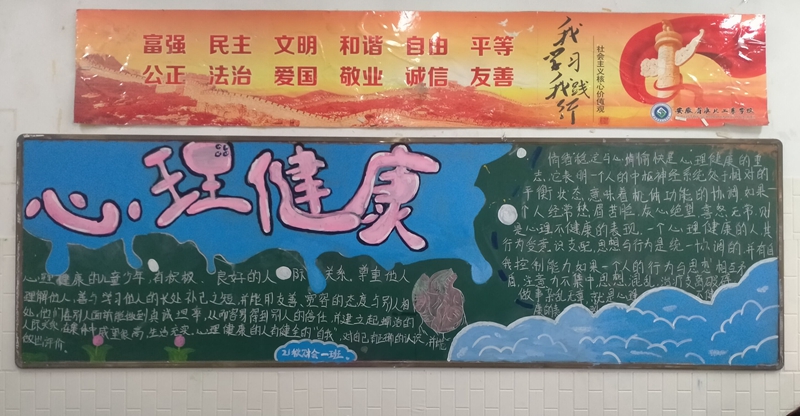 富强 民主 文明 和谐 自由 平等
公正 法治 爱国 敬业 诚信 友善
我学习 我践行
社会主义核心价值观
心理健康
情绪稳定与心情愉快是心理健康的重
志,它表明一个人的中枢神经系统处于相对的
平衡状态,意味着机体功能的协调.如果一
个人经常愁眉苦脸,灰心绝望,喜怒无常,则
是心理不健康的表现,一个心理健康的人其
行为受意识支配,思想与行为是统一协调的,并有自
我控制能力.如果一个人的行为与思想相互矛
盾,注意力不集中,思想混乱,
心理健康的儿童少年,有积极、良好的人际关系.尊重他人
理解他人,善于学习他人的长处补己之短,并能用友善、宽容的态度与别人相
处.他们在别人面前能做到真诚坦率,从而容易得到别人的信任,并建立起融洽的
人际关系,在集体中威望很高,生活充实.心理健康的人有健全的"自我",对自己有正确的认识,并能
做出评价.